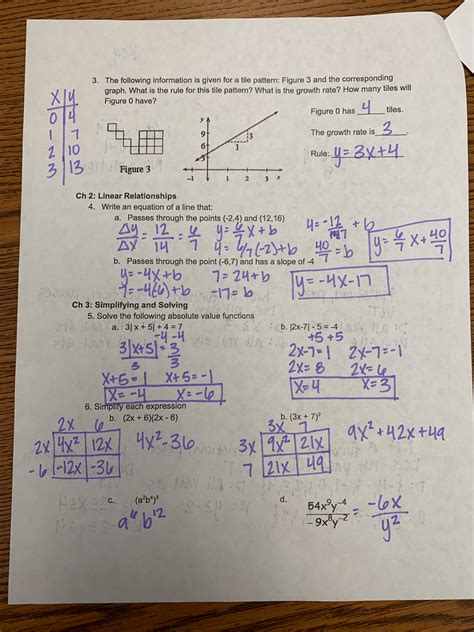 3. The following information is given for a tile pattern: Figure 3 and the corresponding
graph. What is the rule for this tile pattern? What is the growth rate? How many tiles will
Figure 0 have?
x | y
0 | 4
1 | 7
2 | 10
3 | 13
Figure 3
y
9
6
3
3
1
-1 1 2 3 x
Figure 0 has 4 tiles.
The growth rate is 3
Rule: y = 3x+4
Ch 2: Linear Relationships
4. Write an equation of a line that:
a. Passes through the points (-2,4) and (12,16)
Δy/Δx = 12/14 = 6/7
y = 6/7 x + b
4 = 6/7(-2)+b
4 = -12/7 + b
40/7 = b
y = 6/7 x + 40/7
b. Passes through the point (-6,7) and has a slope of -4
y = -4x+b
7 = -4(-6)+b
7 = 24+b
-17 = b
y = -4x-17
Ch 3: Simplifying and Solving
5. Solve the following absolute value functions
a. 3| x + 5| + 4 = 7
-4 -4
3|x+5| = 3
3 3
x+5=1 x+5=-1
x=-4 x=-6
b. |2x-7| - 5 = -4
+5 +5
2x-7=1 2x-7=-1
2x=8 2x=6
x=4 x=3
6. Simplify each expression
b. (2x + 6)(2x - 6)
2x 6
2x 4x² 12x
-6 -12x -36
4x²-36
b. (3x + 7)²
3x 7
3x 9x² 21x
7 21x 49
9x²+42x+49
c. (a²b⁴)³
a⁶b¹²
d. 54x⁹y⁻⁴ / -9x⁸y⁻² = -6x / y²